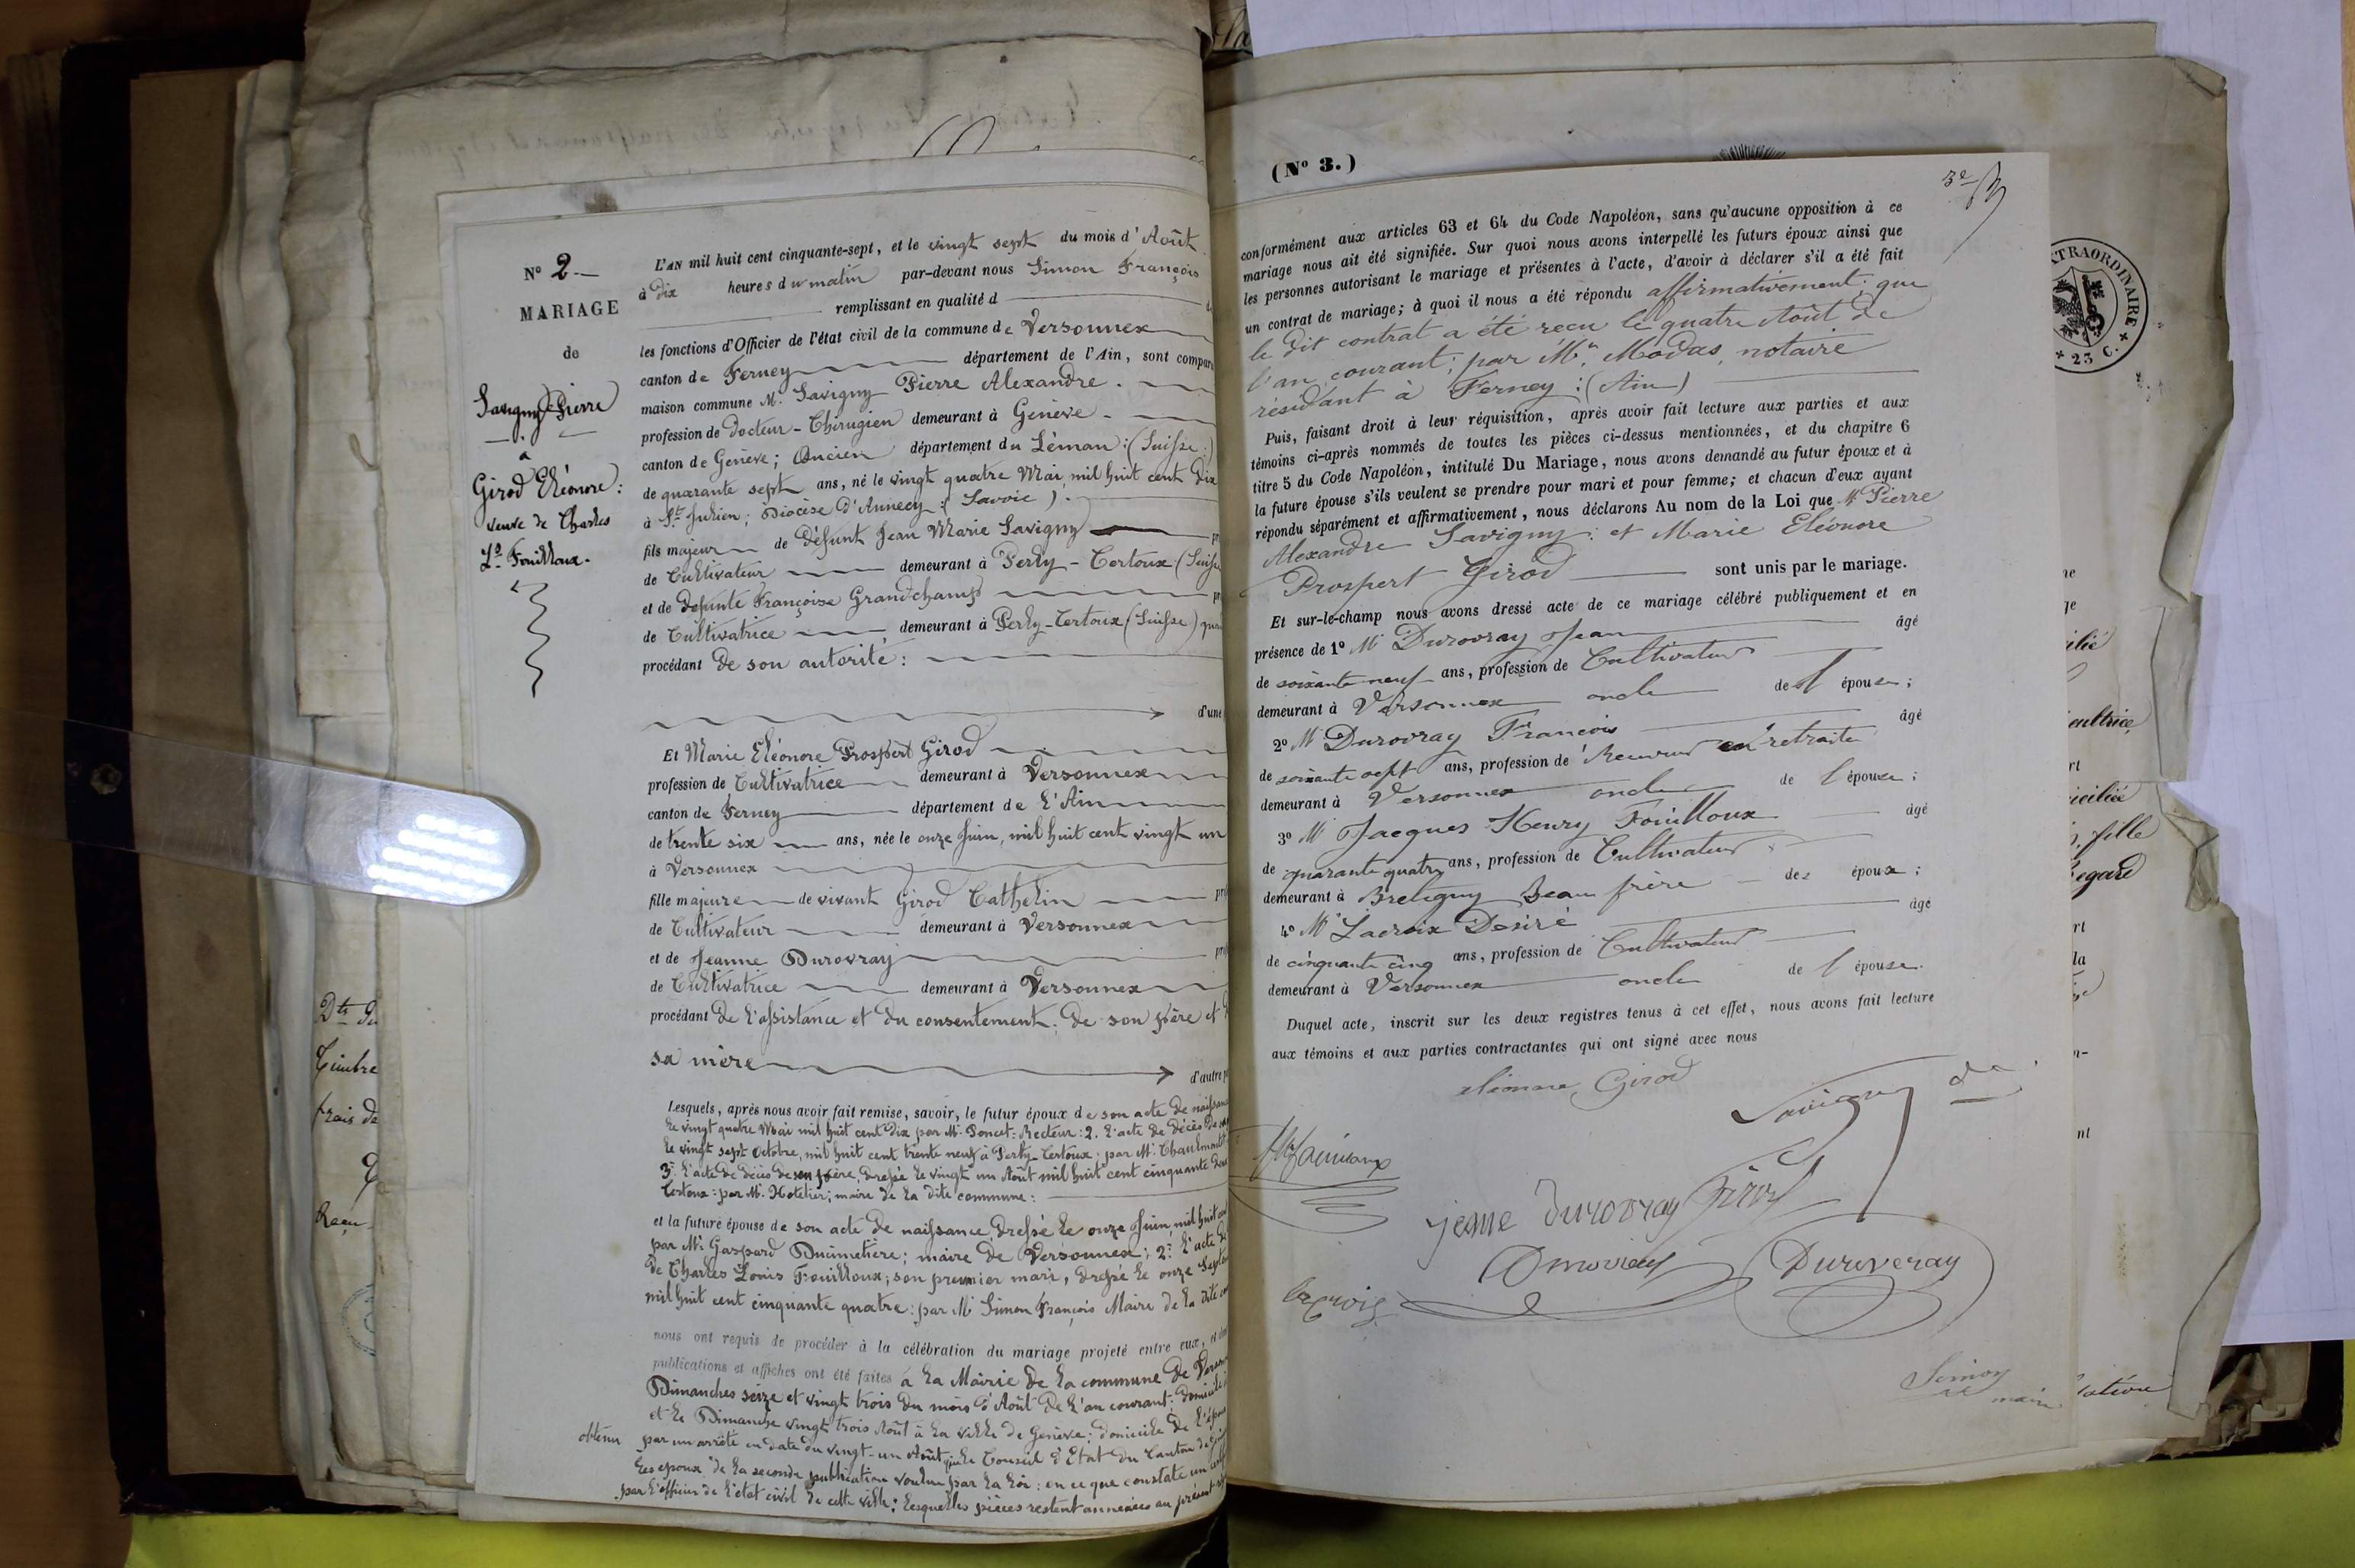 N° 2.—
MARIAGE
de
Savigny Pierre
à
Girod Eléonore :
veuve de Charles
Ls. Fouilloux.
L'AN mil huit cent cinquante-sept, et le vingt sept du mois d'Août
à dix heures du matin par-devant nous Simon François
remplissant en qualité d
les fonctions d'Officier de l'état civil de la commune de Versonnex
canton de Ferney département de l'Ain, sont compar
maison commune Mr. Savigny Pierre Alexandre.
profession de Docteur-Chirugien demeurant à Genève.
canton de Genève; Ancien département du Léman : (Suisse :)
de quarante sept ans, né le vingt quatre Mai, mil huit cent dix
à St. Julien; Diocèse d'Annecy : ( Savoie ).
fils majeur de défunt Jean Marie Savigny
de Cultivateur demeurant à Perly-Certoux (Suisse
et de défunte Françoise Grandchamp
de Cultivatrice demeurant à Perly-Certoux (Suisse)
procédant de son autorité :
d'une
Et Marie Eléonore Prospert Girod
profession de Cultivatrice demeurant à Versonnex
canton de Ferney département de l'Ain
de trente six ans, née le onze Juin, mil huit cent vingt un
à Versonnex
fille majeure de vivant Girod Cathelin
de Cultivateur demeurant à Versonnex
et de Jeanne Durovray
de Cultivatrice demeurant à Versonnex
procédant de l'assistance et du consentement : de son père et
sa mère
d'autre
Lesquels, après nous avoir fait remise, savoir, le futur époux de son acte de naissance
le vingt quatre Mai mil huit cent dix par Mr. Poncet : Recteur : 2. l'acte de décès de
le vingt sept Octobre, mil huit cent trente neuf à Perly-Certoux : par Mr. Chaulmontet
3° l'acte de décès de son père, dressé le vingt un Août mil huit cent cinquante
Certoux : par Mr. Hotelier; maire de la dite commune :
et la future épouse de son acte de naissance dressé le onze Juin, mil huit cent
par Mr. Gaspard Ducimetière; maire de Versonnex; 2° l'acte de
de Charles Louis Fouilloux; son premier mari, dressé le onze Septem
mil huit cent cinquante quatre : par Mr Simon François Maire de la dite
nous ont requis de procéder à la célébration du mariage projeté entre eux, et
publications et affiches ont été faites à la Mairie de la commune de Verson
Dimanches seize et vingt trois du mois d'Août de l'an courant : domicile
et le Dimanche vingt trois Août à la ville de Genève; domicile de l'époux
obtenu par un arrêté en date du vingt-un Août, que le Conseil d'Etat du Canton de
les epoux de la seconde publication voulue par la loi : en ce que constate un
par l'officier de l'état civil de cette ville : lesquelles pièces restent annexées au présent
(N° 3.)
3e
conformément aux articles 63 et 64 du Code Napoléon, sans qu'aucune opposition à ce
mariage nous ait été signifiée. Sur quoi nous avons interpellé les futurs époux ainsi que
les personnes autorisant le mariage et présentes à l'acte, d'avoir à déclarer s'il a été fait
un contrat de mariage; à quoi il nous a été répondu affirmativement; que
le dit contrat a été recu le quatre Août de
l'an courant; par Me. Modas, notaire
résidant à Ferney : (Ain)
Puis, faisant droit à leur réquisition, après avoir fait lecture aux parties et aux
témoins ci-après nommés de toutes les pièces ci-dessus mentionnées, et du chapitre 6
titre 5 du Code Napoléon, intitulé Du Mariage, nous avons demandé au futur époux et à
la future épouse s'ils veulent se prendre pour mari et pour femme; et chacun d'eux ayant
répondu séparément et affirmativement, nous déclarons Au nom de la Loi que Mr Pierre
Alexandre Savigny : et Marie Eléonore
Prospert Girod sont unis par le mariage.
Et sur-le-champ nous avons dressé acte de ce mariage célébré publiquement et en
présence de 1° Mr Durovray Jean âgé
de soixante neuf ans, profession de Cultivateur
demeurant à Versonnex oncle de l'épouse;
2° Mr Durovray Francois âgé
de soixante sept ans, profession de Receveur en retraite
demeurant à Versonnex oncle de l'épouse;
3° Mr Jacques Henry Fouilloux âgé
de quarante quatre ans, profession de Cultivateur
demeurant à Bretigny Beau frère des époux;
4° Mr Lacroix Desiré âgé
de cinquante cinq ans, profession de Cultivateur
demeurant à Versonnex oncle de l'épouse.
Duquel acte, inscrit sur les deux registres tenus à cet effet, nous avons fait lecture
aux témoins et aux parties contractantes qui ont signé avec nous
eléonore Girod
Savigny
Jeane Durovray Girod
Duroveray
Lacroix
Simon
maire
EXTRAORDINAIRE
23 C.
Timbre
frais de
Reçu